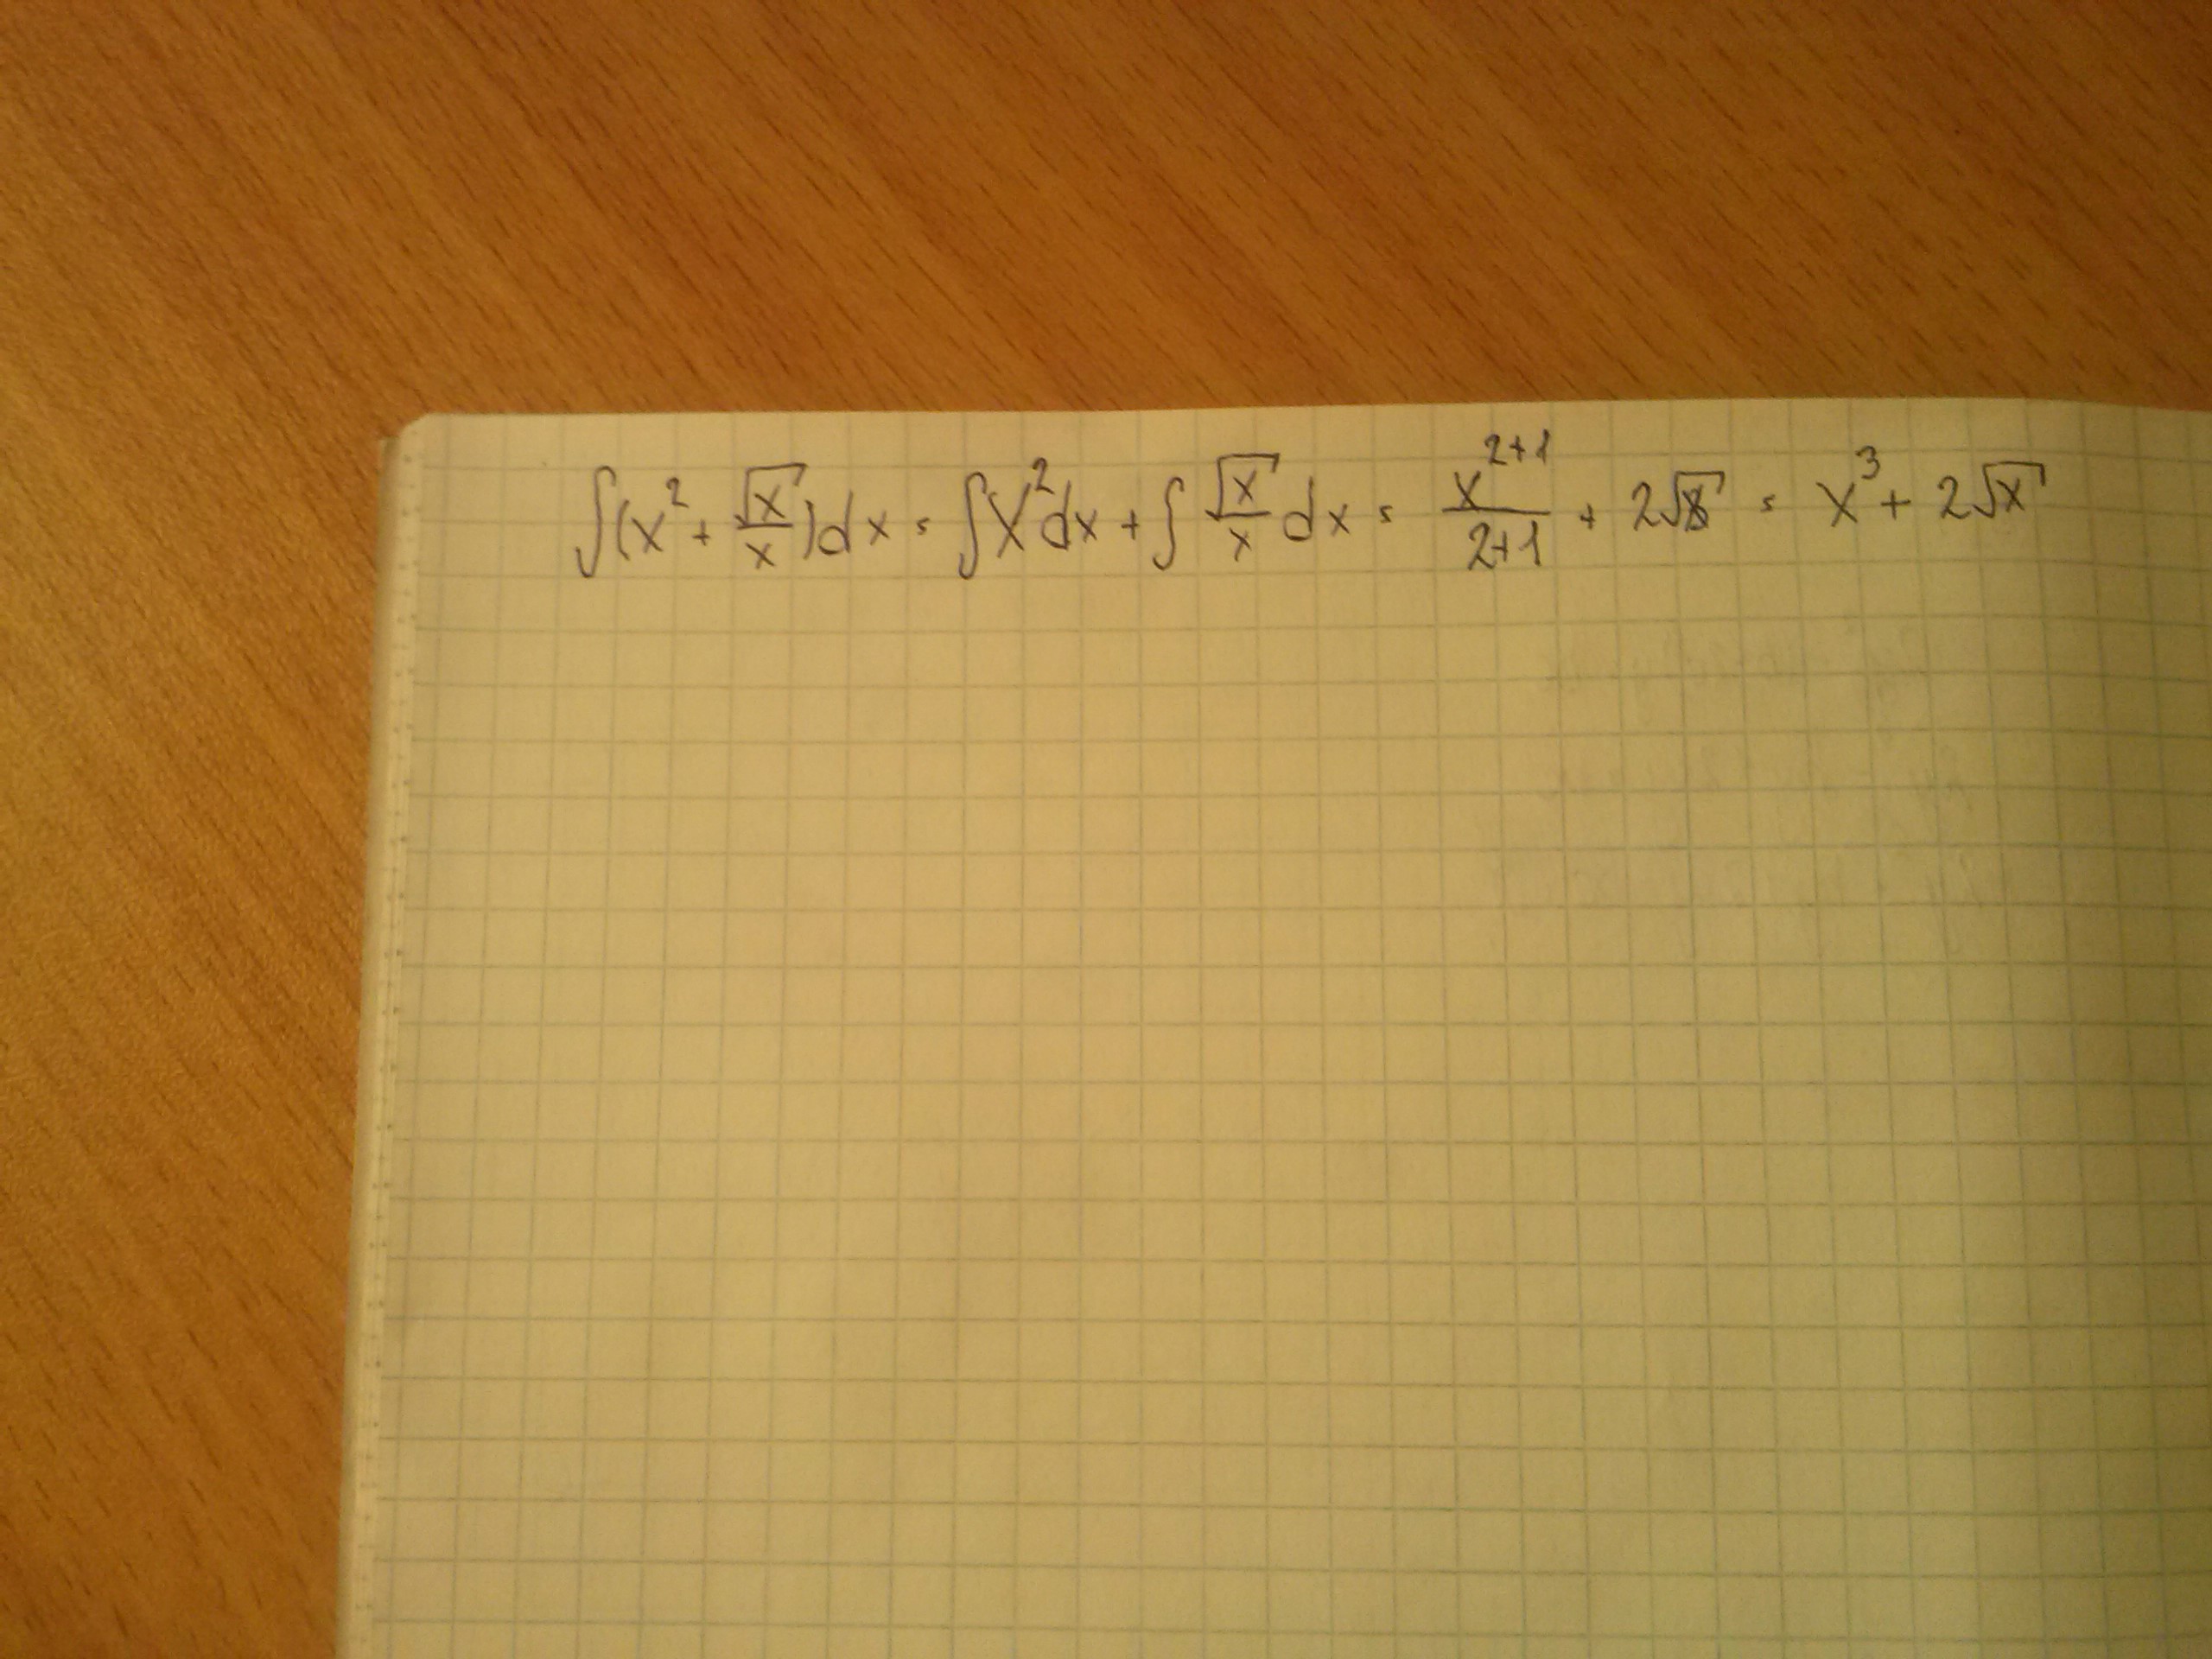 ∫(x² + √x/x)dx = ∫x²dx + ∫ √x/x dx = x²⁺¹/2+1 + 2√x = x³ + 2√x